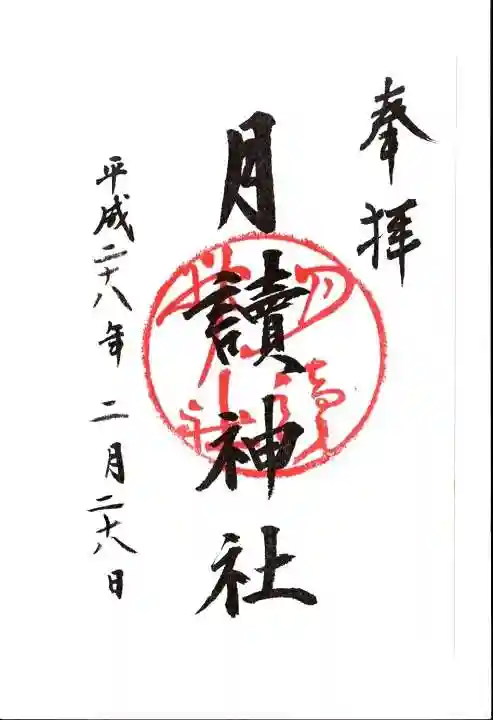 奉拝
月讀神社
平成二十八年二月二十八日